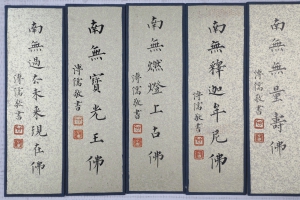 南無無量壽佛
南無釋迦牟尼佛
溥儒敬書
南無燃燈上古佛
溥儒敬書
南無寶光王佛
溥儒敬書
南無過去未來現在佛
溥儒敬書